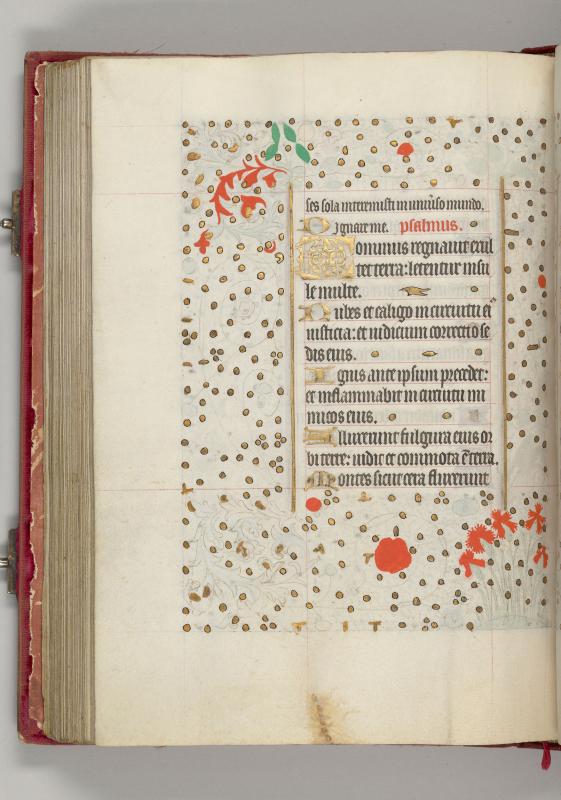 ses sola interemisti in universo mundo.
Dignare me. psalmus.
Dominus regnavit exul
tet terra: letentur insu
le multe.
Nubes et caligo in circuitu ei
iusticia: et iudicium correctio se
dis eius.
Ignis ante ipsum precedet:
et inflammabit in circuitu ini
micos eius.
Illuxerunt fulgura eius or
bi terre: vidit et commota est terra.
Montes sicut cera fluxerunt